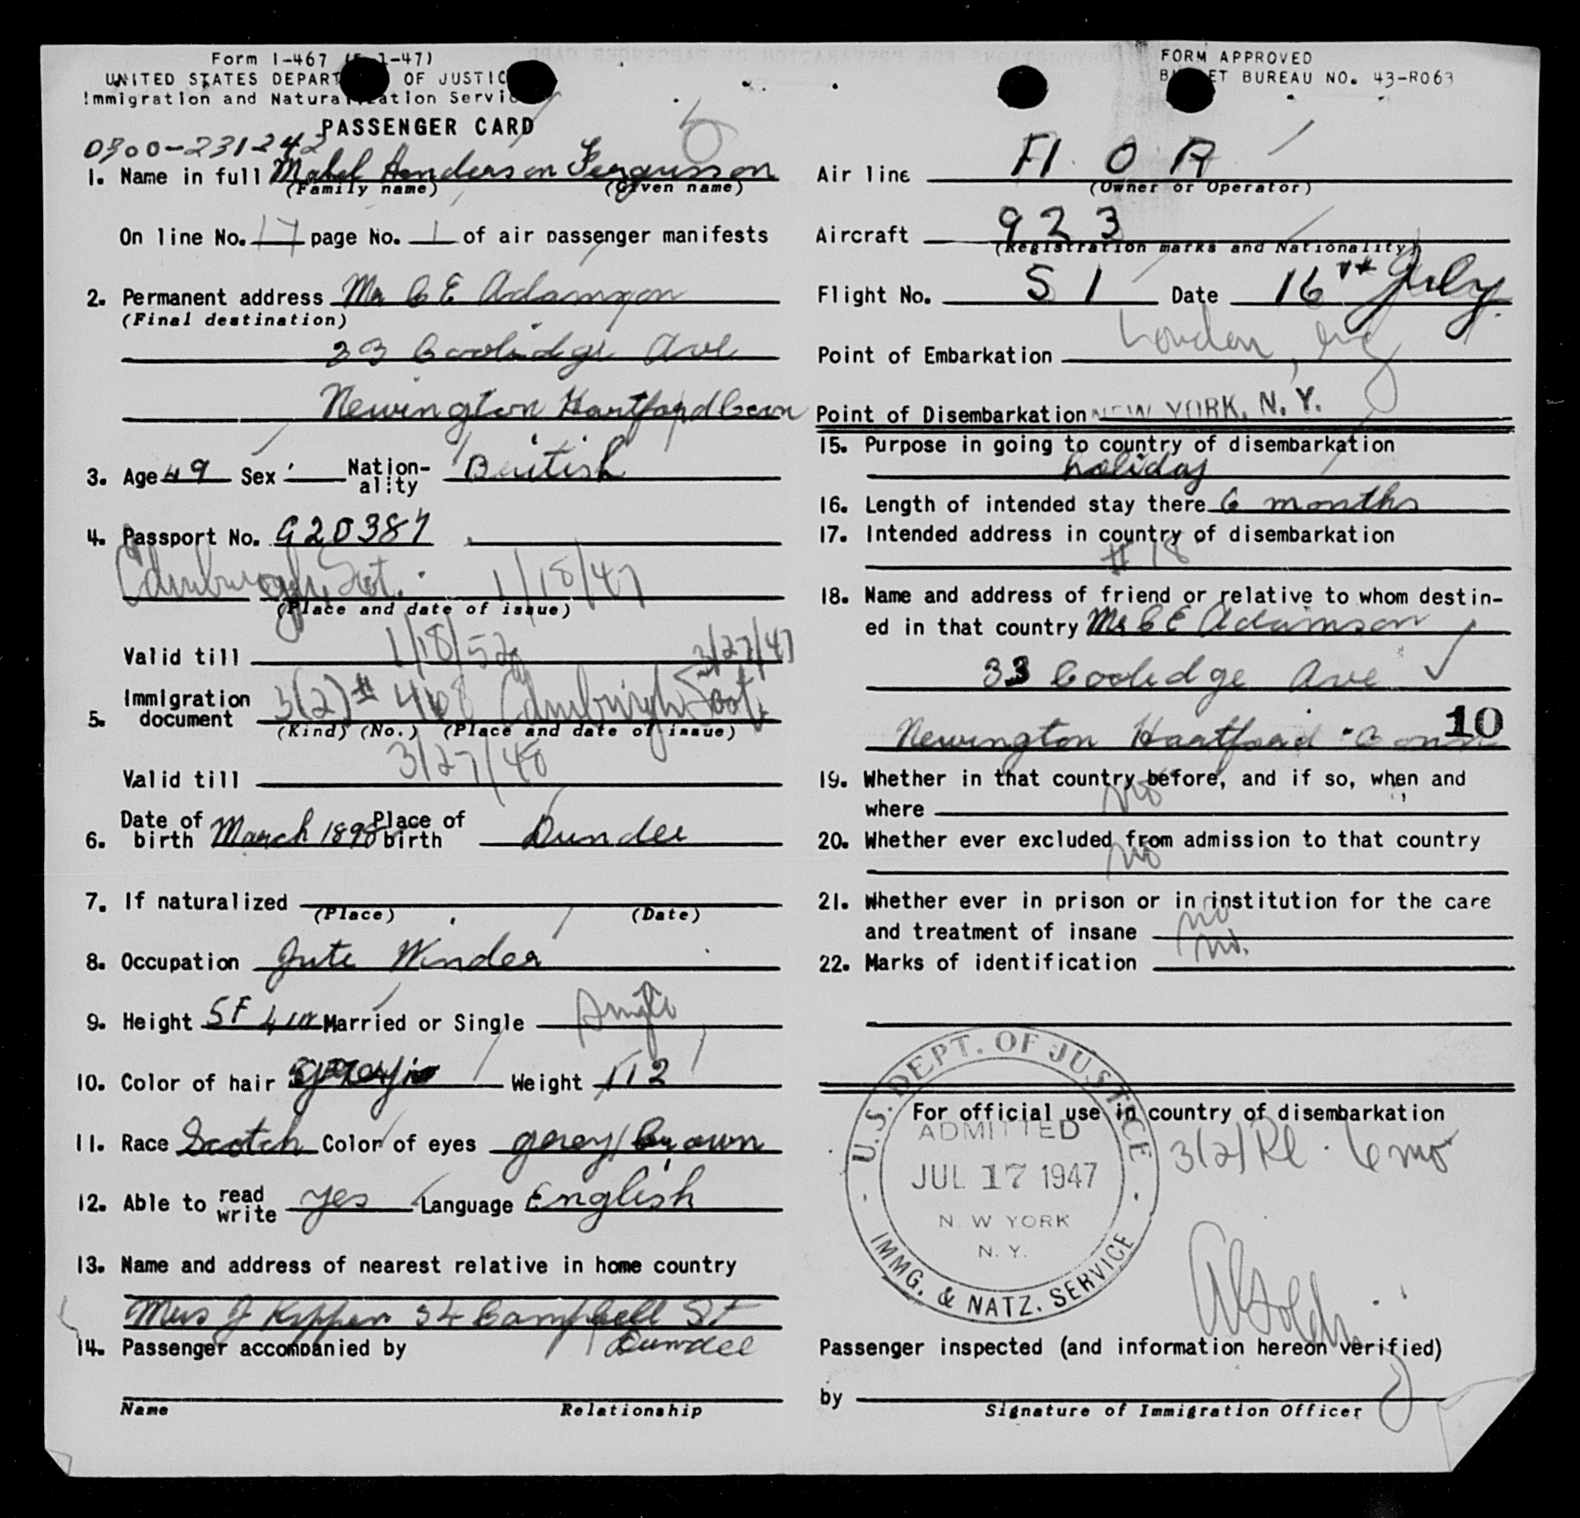 Form I-467 ( -47)
UNITED STATES DEPART OF JUSTIC
Immigration and Naturalization Service
PASSENGER CARD
0300-231242
1. Name in full Mabel Henderson Fergusson
(Family name) (Given name)
On line No. 17 page No. 1 of air passenger manifests
2. Permanent address Mr C E Adamson
(Final destination)
33 Coolidge Ave
Newington Hartford Conn
3. Age 49 Sex Nation-ality British
4. Passport No. G20387
Edinburgh, Scot. 1/18/47
(Place and date of issue)
Valid till 1/18/52
3/27/47
5. Immigration document 3(2) # 468 Edinburgh Scot.
(Kind) (No.) (Place and date of issue)
Valid till 3/27/48
6. Date of birth March 1898 Place of birth Dundee
7. If naturalized
(Place) (Date)
8. Occupation Jute Winder
9. Height 5F 4 in Married or Single Single
10. Color of hair grey Weight 112
11. Race Scotch Color of eyes grey/Brown
12. Able to read write yes Language English
13. Name and address of nearest relative in home country
Mrs J Kippen 34 Campbell St
Dundee
14. Passenger accompanied by
Name Relationship
FORM APPROVED
B ET BUREAU NO. 43-R063
6
Air line A O A
(Owner or Operator)
Aircraft 923
(Registration marks and Nationality)
Flight No. 51 Date 16 July
Point of Embarkation London, Eng
Point of Disembarkation NEW YORK, N. Y.
15. Purpose in going to country of disembarkation
holiday
16. Length of intended stay there 6 months
17. Intended address in country of disembarkation
# 18
18. Name and address of friend or relative to whom destin-
ed in that country Mr C E Adamson
33 Coolidge Ave
10
Newington Hartford Conn
19. Whether in that country before, and if so, when and
where No
20. Whether ever excluded from admission to that country
no
21. Whether ever in prison or in institution for the care
and treatment of insane no
22. Marks of identification no.
For official use in country of disembarkation
U.S. DEPT. OF JUSTICE
ADMITTED
JUL 17 1947
N W YORK
N. Y.
IMMG. & NATZ. SERVICE
3(2)/Pl. 6 mo
Passenger inspected (and information hereon verified)
by
Signature of Immigration Officer